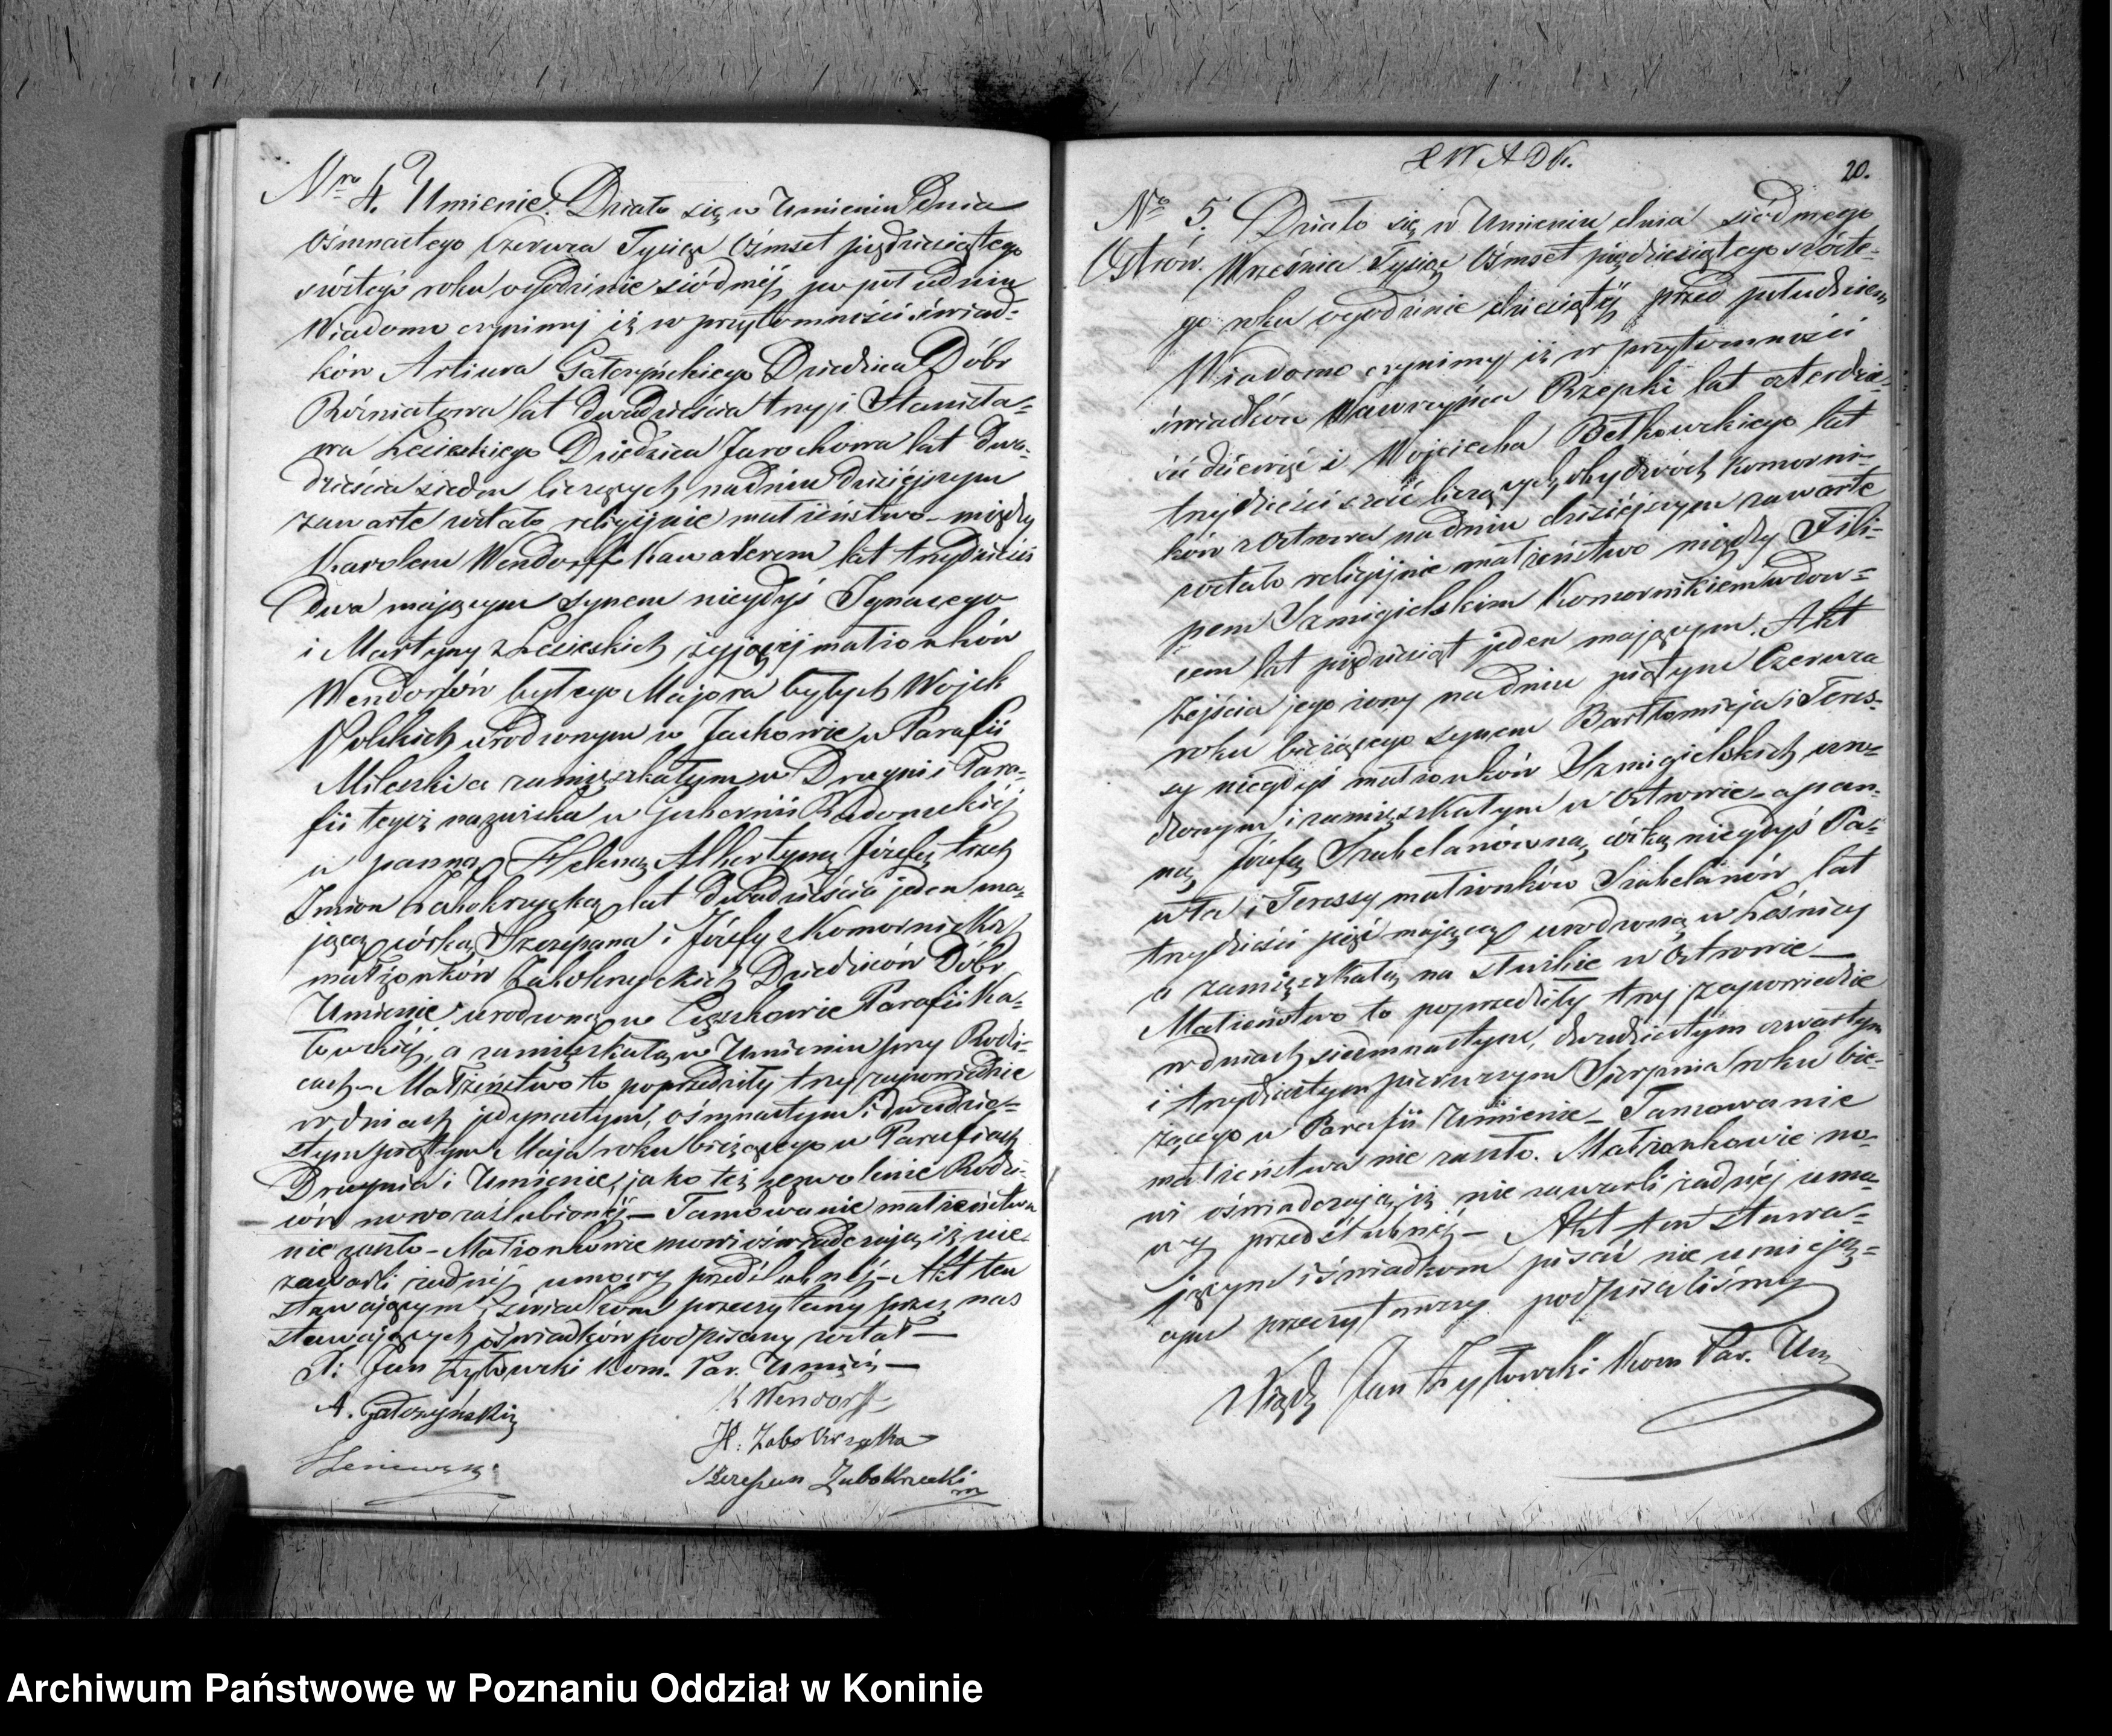 Nro 4. Umienie. Działo się w Umieniu Dnia
Ośmnastego Czerwca Tysiąc Ośmset pięćdziesiątego
szóstego roku o godzinie siódméj po południu
Wiadomo czynimy iż w przytomności świad-
ków Artiura Gałczyńskiego Dziedzica Dóbr
Rożniatowa lat dwadzieścia trzy i Stanisła-
wa Dziedzica Jarochowa lat dwa-
dzieścia siedm liczących na dniu dzisiejszym
zawarte zostało religijnie małżeństwo między
Karolem Wendorff Kawalerem lat trzydzieści
dwa mającym synem niegdyś Ignacego
i Martyny z żyjącéj małżonków
Wendorfów byłego Majora byłych Wojsk
Polskich urodzonym w Parafii
Mileszki a zamięszkałym w Drużyni Para-
fii tegoż nazwiska w Gubernii Radomskiéj
a panną Heleną Albertyną Józefą trzech
Imion Zabokrzycką lat dwadzieścia jeden ma-
jącą córką Szczepana i Józefy z Komornickich
małżonków Zabokrzyckich Dziedziców Dóbr
Umienie urodzoną w Parafii Ka-
a zamięszkałą w Umieniu przy Rodzi-
cach – Małżeństwo to poprzedziły trzy zapowiedzie
w dniach jedynastym, ośmnastym i dwudzie-
stym piątym Maja roku bieżącego w Parafiach
i Umienie, jako też zezwolenie Rodzi-
ców nowozaślubionéj – Tamowanie małżeństwa
nie zaszło – Małżonkowie nowi oświadczają iż nie
zawarli żadnéj umowy przedślubnéj – Akt ten
stawającym i świadkom przeczytany przez nas
stawających i świadków podpisany został –
X: Jan Żyłowski Kom. Par. Umień –
A. Gałczyński
K Wendorff
H: Zabokrzycka
Szczepan Zabokrzecki
XWADK.
20.
No 5. Działo się w Umieniu dnia siódmego
Ostrów. Września Tysiąc Ośmset pięćdziesiątego szóste-
go roku o godzinie dziesiątéj przed południem
Wiadomo czynimy iż w przytomności
świadków Wawrzyńca Rzepki lat czterdzie-
ści dziewięć i Wojciecha Betkowskiego lat
trzydzieści sześć liczących, obydwóch komorni-
ków z Ostrowa na dniu dzisiejszym zawarte
zostało religijnie małżeństwo między Fili-
pem Szmigielskim Komornikiem wdow-
cem lat pięćdziesiąt jeden mającym. Akt
Zejścia jego żony na dniu piątym Czerwca
roku bieżącego synem Bartłomieja i Teres-
sy niegdyś małżonków Szmigielskich uro-
dzonym i zamięszkałym w Ostrowie – a pan-
ną Józefą Szabelanówną, córką niegdyś Pa-
wła i Teressy małżonków Szabelanów lat
trzydzieści pięć mającą urodzoną w Leśnicy
a zamięszkałą na służbie w Ostrowie –
Małżeństwo to poprzedziły trzy zapowiedzie
w dniach siedmnastym, dwudziestym czwartym
i trzydziestym pierwszym Sierpnia roku bie-
żącego w Parafii Umienie – Tamowanie
małżeństwa nie zaszło. Małżonkowie no-
wi oświadczają iż nie zawarli żadnéj umo-
wy przedślubnéj – Akt ten stawa-
jącym i świadkom pisać nie umieją-
cym przeczytawszy podpisaliśmy
Xiądz Jan Żyłowski Kom Par. Um
Archiwum Państwowe w Poznaniu Oddział w Koninie